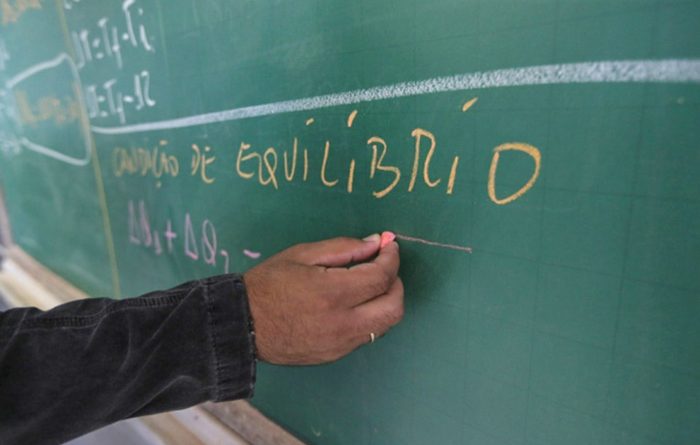 ΔT = Tf - Ti
ΔT = Tf - 32
CONDIÇÃO DE EQUILÍBRIO
ΔQ₁ + ΔQ₂ =